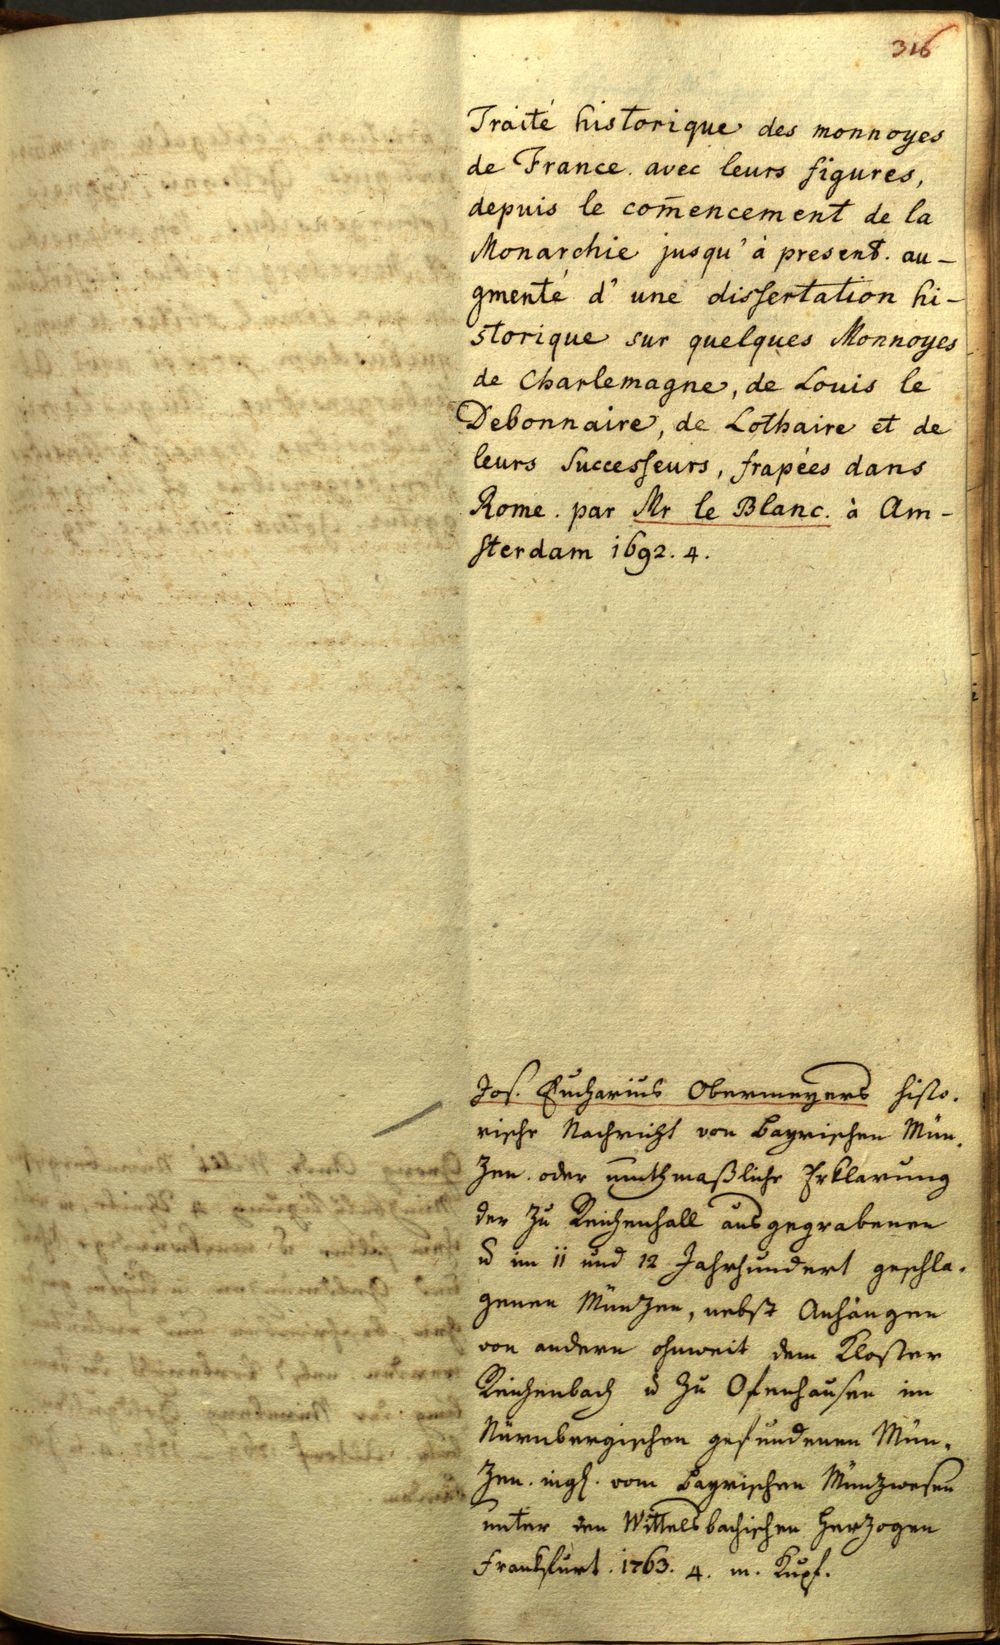 316
Traité historique des monnoyes
de France. avec leurs figures,
depuis le com̄encement de la
Monarchie jusqu' à present. au-
gmenté d' une dissertation hi-
storique sur quelques Monnoyes
de Charlemagne, de Louis le
Debonnaire, de Lothaire et de
leurs Successeurs, frapées dans
Rome. par Mr le Blanc. à Am-
sterdam 1692. 4.
Jos. Eucharius Obermeyers histo-
rische Nachricht von Bayrischen Mün-
zen. oder muthmaßliche Erklarung
der zu Reichenhall ausgegrabenen
u im 11 und 12 Jahrhundert geschla-
genen Münzen, nebst Anhängen
von andern ohnweit dem Kloster
Reichenbach u zu Ofenhausen im
Nürnbergischen gefundenen Mün-
zen. ingl. vom Bayrischen Münzwesen
unter den Wittelsbachischen Herzogen
Frankfurt. 1763. 4. m. Kupf.